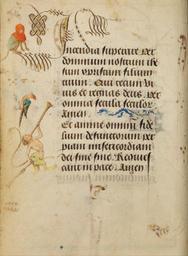 Incendia superare per
dominum nostrum ihe
sum xpristum filium
tuum. Qui tecum vi
uis et regnas deus. Per
omnia secula seculor
Amen.
Et anime omnium fide
lium defunctorum per
piam misericordiam
dei sine fine Requies
cant in pace. Amen